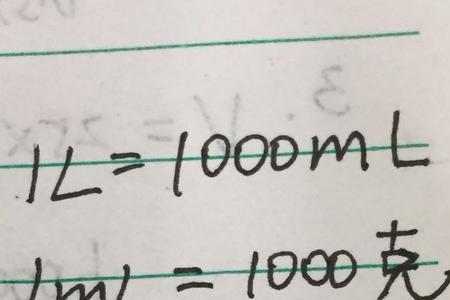 1L=1000mL
1ml = 1000克